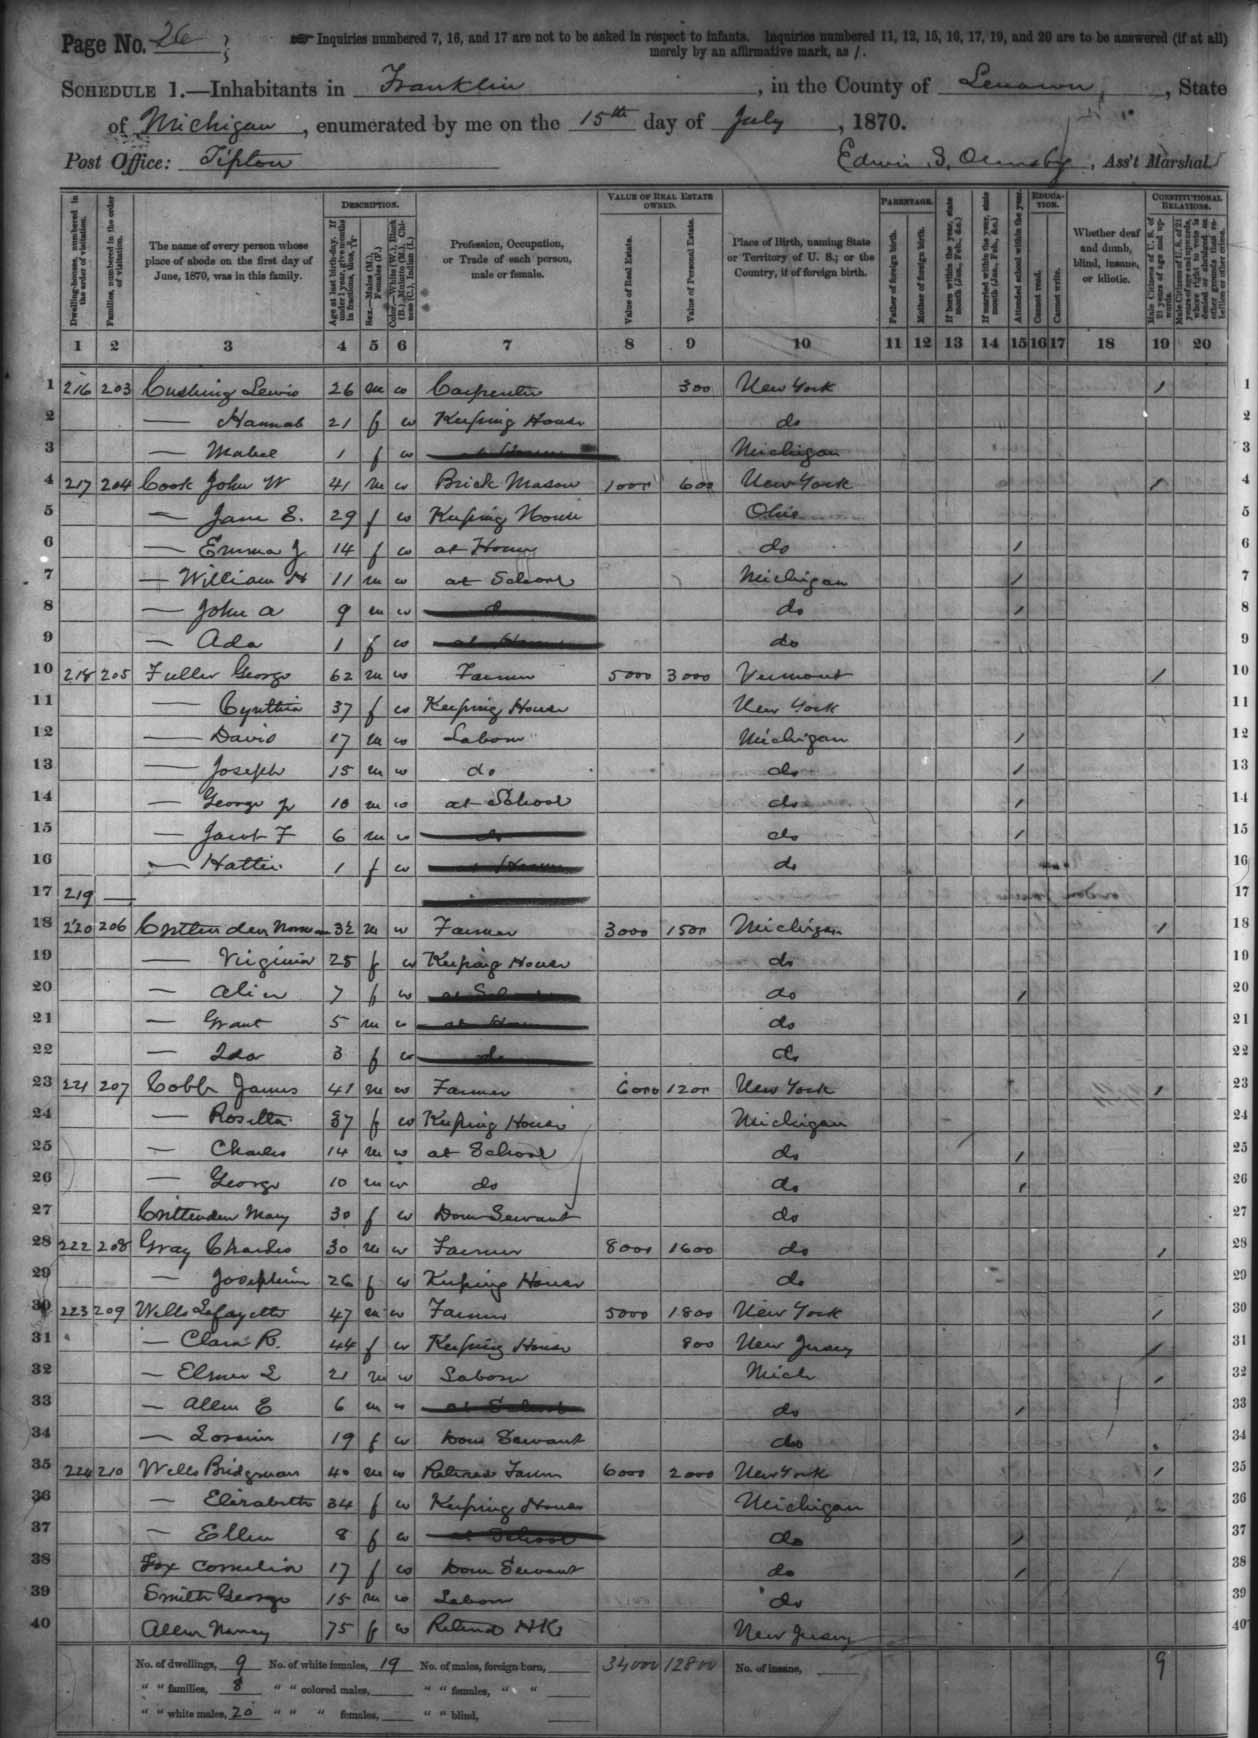 Page No. 26
Inquiries numbered 7, 16, and 17 are not to be asked in respect to infants. Inquiries numbered 11, 12, 15, 16, 17, 19, and 20 are to be answered (if at all)
merely by an affirmative mark, as /.
SCHEDULE 1.—Inhabitants in Franklin, in the County of Lenawee, State
of Michigan, enumerated by me on the 15th day of July, 1870.
Post Office: Tipton
Edwin S. Ormsby, Ass't Marshal.
DESCRIPTION. VALUE OF REAL ESTATE OWNED. PARENTAGE. EDUCATION. CONSTITUTIONAL RELATIONS.
Dwelling-houses, numbered in the order of visitation.
Families, numbered in the order of visitation.
The name of every person whose place of abode on the first day of June, 1870, was in this family.
Age at last birth-day. If under 1 year, give months in fractions, thus, 3/12
Sex.—Males (M.), Females (F.)
Color.—White (W.), Black (B.), Mulatto (M.), Chinese (C.), Indian (I.)
Profession, Occupation, or Trade of each person, male or female.
Value of Real Estate.
Value of Personal Estate.
Place of Birth, naming State or Territory of U. S.; or the Country, if of foreign birth.
Father of foreign birth.
Mother of foreign birth.
If born within the year, state month (Jan., Feb., &c.)
If married within the year, state month (Jan., Feb., &c.)
Attended school within the year.
Cannot read.
Cannot write.
Whether deaf and dumb, blind, insane, or idiotic.
Male Citizens of U. S. of 21 years of age and upwards.
Male Citizens of U. S. of 21 years of age and upwards, whose right to vote is denied or abridged on other grounds than rebellion or other crime.
1 2 3 4 5 6 7 8 9 10 11 12 13 14 15 16 17 18 19 20
1 216 203 Cushing Lewis 26 m w Carpenter 300 New York / 1
2 — Hannah 21 f w Keeping House do 2
3 — Mabel 1 f w at Home Michigan 3
4 217 204 Cook John W 41 m w Brick Mason 1000 600 New York / 4
5 — Jane E. 29 f w Keeping House Ohio 5
6 — Emma J 14 f w at Home do / 6
7 — William H 11 m w at School Michigan / 7
8 — John A 9 m w do do / 8
9 — Ada 1 f w at Home do 9
10 218 205 Fuller George 62 m w Farmer 5000 3000 Vermont / 10
11 — Cynthia 37 f w Keeping House New York 11
12 — David 17 m w Labour Michigan / 12
13 — Joseph 15 m w do do / 13
14 — George Jr 10 m w at School do / 14
15 — Jacob F 6 m w do do / 15
16 — Hattie 1 f w at Home do 16
17 219 — 17
18 220 206 Crittenden Norman 32 m w Farmer 3000 1500 Michigan / 18
19 — Virginia 25 f w Keeping House do 19
20 — Alice 7 f w at School do / 20
21 — Grant 5 m w at Home do 21
22 — Ida 3 f w do do 22
23 221 207 Cobb James 41 m w Farmer 6000 1200 New York / 23
24 — Rosetta 37 f w Keeping House Michigan 24
25 — Charles 14 m w at School do / 25
26 — George 10 m w do do / 26
27 Crittenden Mary 30 f w Dom Servant do 27
28 222 208 Gray Charles 30 m w Farmer 8000 1600 do / 28
29 — Josephine 26 f w Keeping House do 29
30 223 209 Wells Lafayette 47 m w Farmer 5000 1800 New York / 30
31 — Clara R. 44 f w Keeping House 800 New Jersey / 31
32 — Elmer L 21 m w Labour Mich / 32
33 — Allen E 6 m w at School do / 33
34 — 19 f w Dom Servant do 34
35 224 210 Wells Bridgman 40 m w Retired Farm 6000 2000 New York / 35
36 — Elizabeth 34 f w Keeping House Michigan 36
37 — Ellen 8 f w at School do / 37
38 Fox Cornelia 17 f w Dom Servant do / 38
39 Smith George 15 m w Labour do 39
40 Allen Nancy 75 f w Retired HK New Jersey 40
No. of dwellings, 9 No. of white females, 19 No. of males, foreign born, 34000 12800 No. of insane, 9
" " families, 8 " " colored males, " " females, " "
" " white males, 20 " " " females, " " blind,